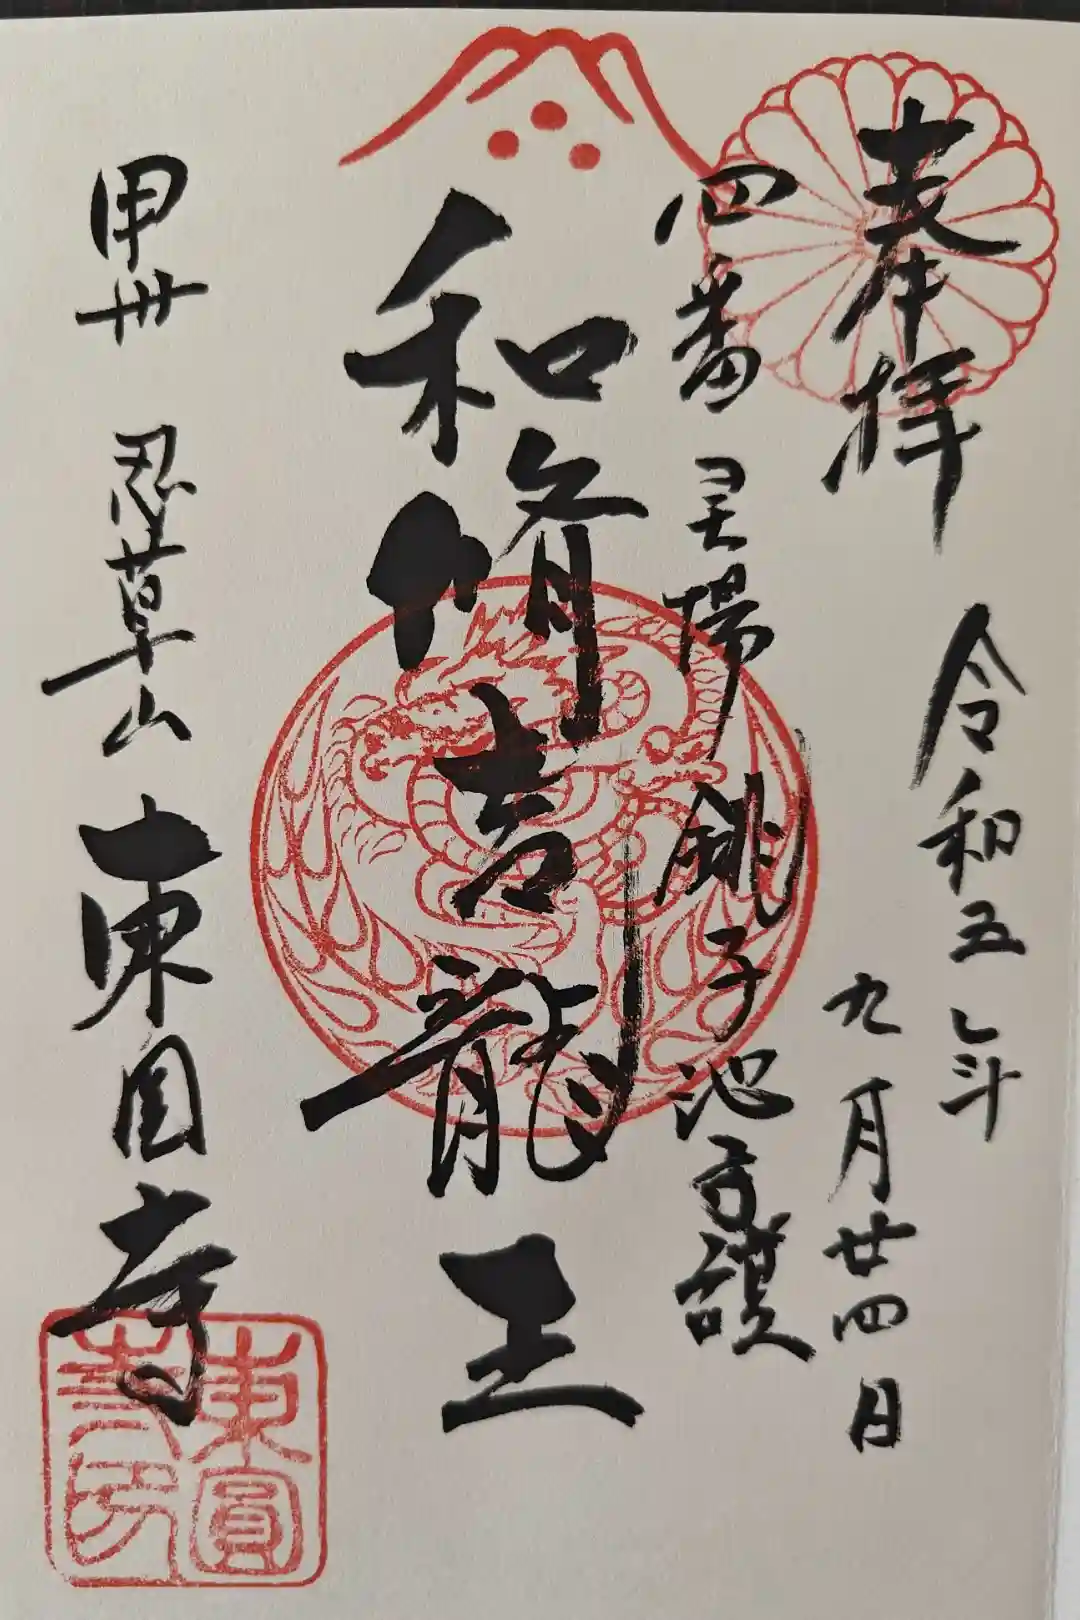 奉拝
令和五年
九月廿四日
四番 霊場 銚子池守護
和脩吉龍王
甲州 忍草山 東円寺
東圓
寺印